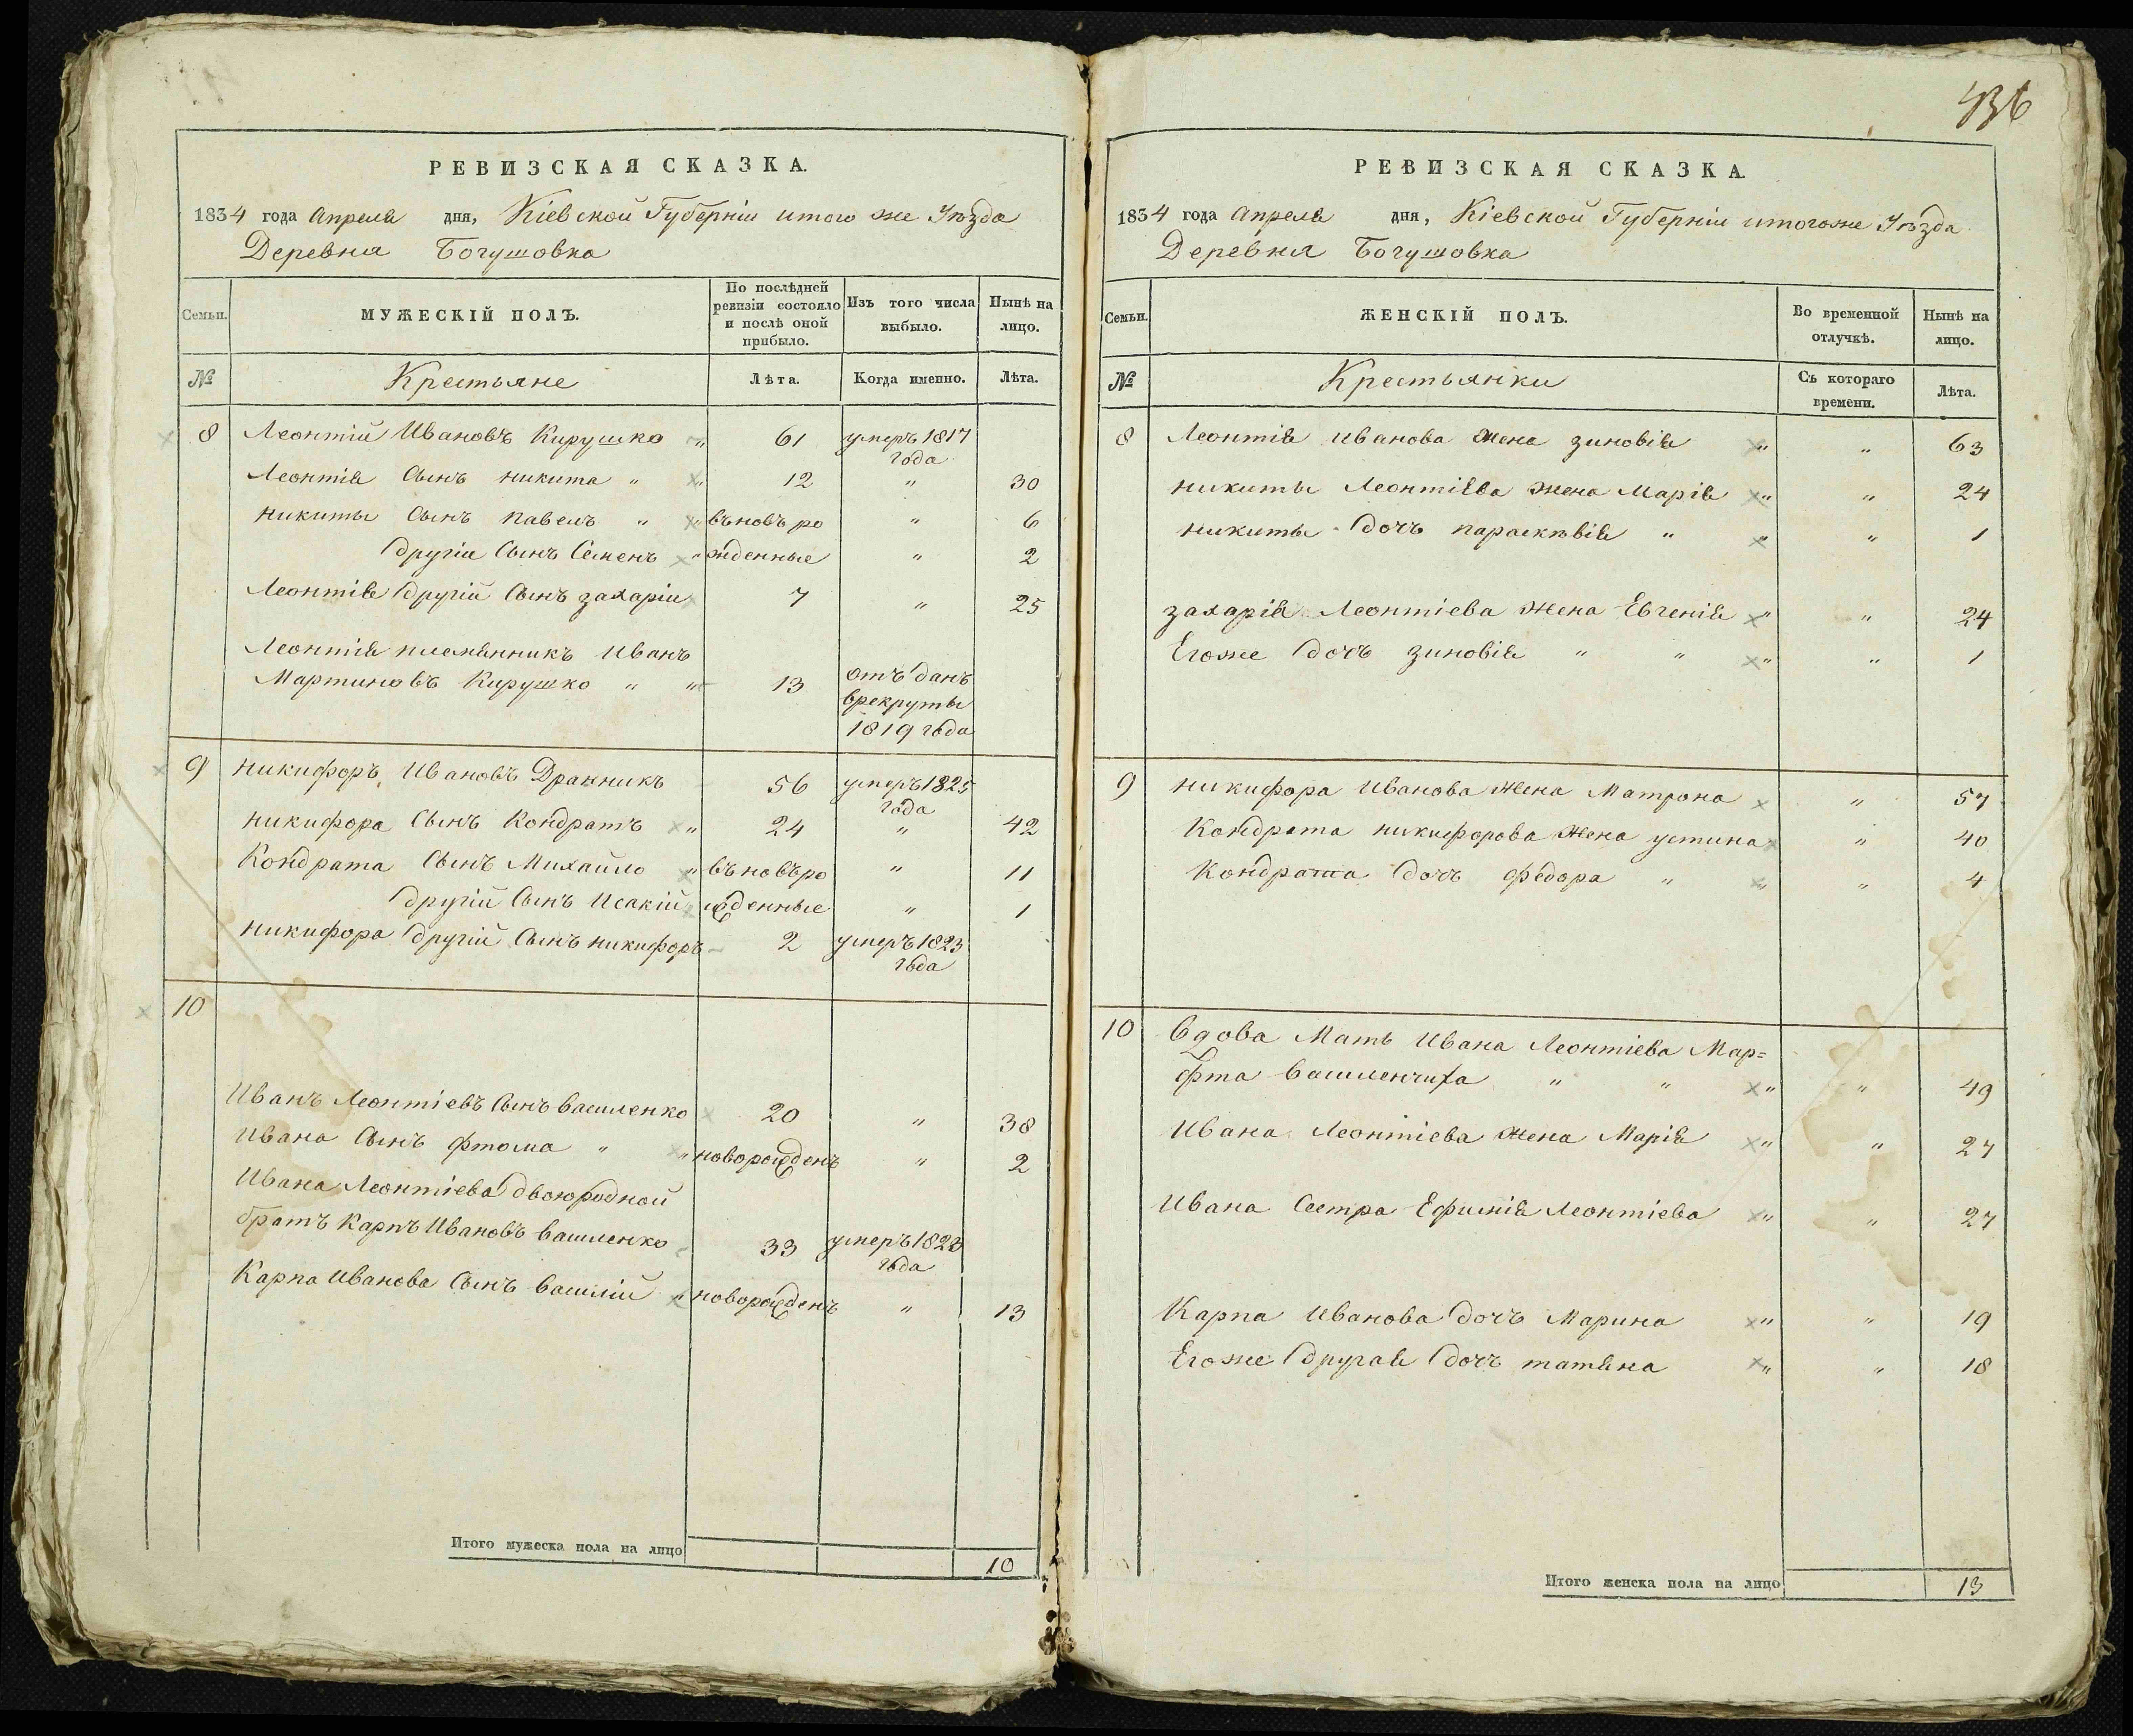 РЕВИЗСКАЯ СКАЗКА.
1834 года Апреля дня, Кіевской Губерніи итого же Уѣзда
Деревня Богушовка
Семьи.
МУЖЕСКІЙ ПОЛЪ.
По послѣдней ревизіи состояло и послѣ оной прибыло.
Изъ того числа выбыло.
Нынѣ на лицо.
№ Крестьяне Лѣта. Когда именно. Лѣта.
8 Леонтій Ивановъ Кирушко " 61 умеръ 1817
года
Леонтія Сынъ никита " " 12 " 30
никиты Сынъ павелъ " " въновъ ро " 6
другіи Сынъ Семенъ " жденные " 2
Леонтія другій Сынъ захаріи 7 " 25
Леонтія племянникъ Иванъ
Мартиновъ Кирушко " " 13 отъ данъ
врекруты
1819 года
9 никифоръ Ивановъ Дракникъ 56 умеръ 1825
года
никифора Сынъ Кондратъ " 24 " 42
Кондрата Сынъ Михайло " въновъро " 11
другій Сынъ Исакій жденные " 1
никифора другій Сынъ никифоръ 2 умеръ 1823
года
10
Иванъ Леонтіевъ Сынъ василенко 20 " 38
Ивана Сынъ фтома " " новорожденъ " 2
Ивана Леонтіева двоюродной
братъ Карпъ Ивановъ василенко 33 умеръ 1823
года
Карпа Иванова Сынъ василій " новорожденъ " 13
Итого мужеска пола на лицо 10
436
РЕВИЗСКАЯ СКАЗКА.
1834 года Апреля дня, Кіевской Губерніи итогоже Уѣзда
Деревня Богушовка
Семьи.
ЖЕНСКІЙ ПОЛЪ.
Во временной отлучкѣ.
Нынѣ на лицо.
№ Крестьянки Съ котораго времени. Лѣта.
8 Леонтія иванова жена зиновія " " 63
никиты Леонтіева жена Марія " " 24
никиты дочъ параскѣвія " " " 1
захарія Леонтіева жена Евгенія " " 24
Егоже дочъ зиновія " " " " 1
9 никифора Иванова жена Матрона " 57
Кондрата никифорова жена устина " 40
Кондрата дочъ федора " " " 4
10 вдова Мать Ивана Леонтіева Мар=
фта василенчиха " " " " 49
Ивана Леонтіева жена Марія " " 27
Ивана Сестра Ефимія Леонтіева " " 27
Карпа Иванова дочъ Марина " " 19
Егоже другая дочъ татяна " " 18
Итого женска пола на лицо 13